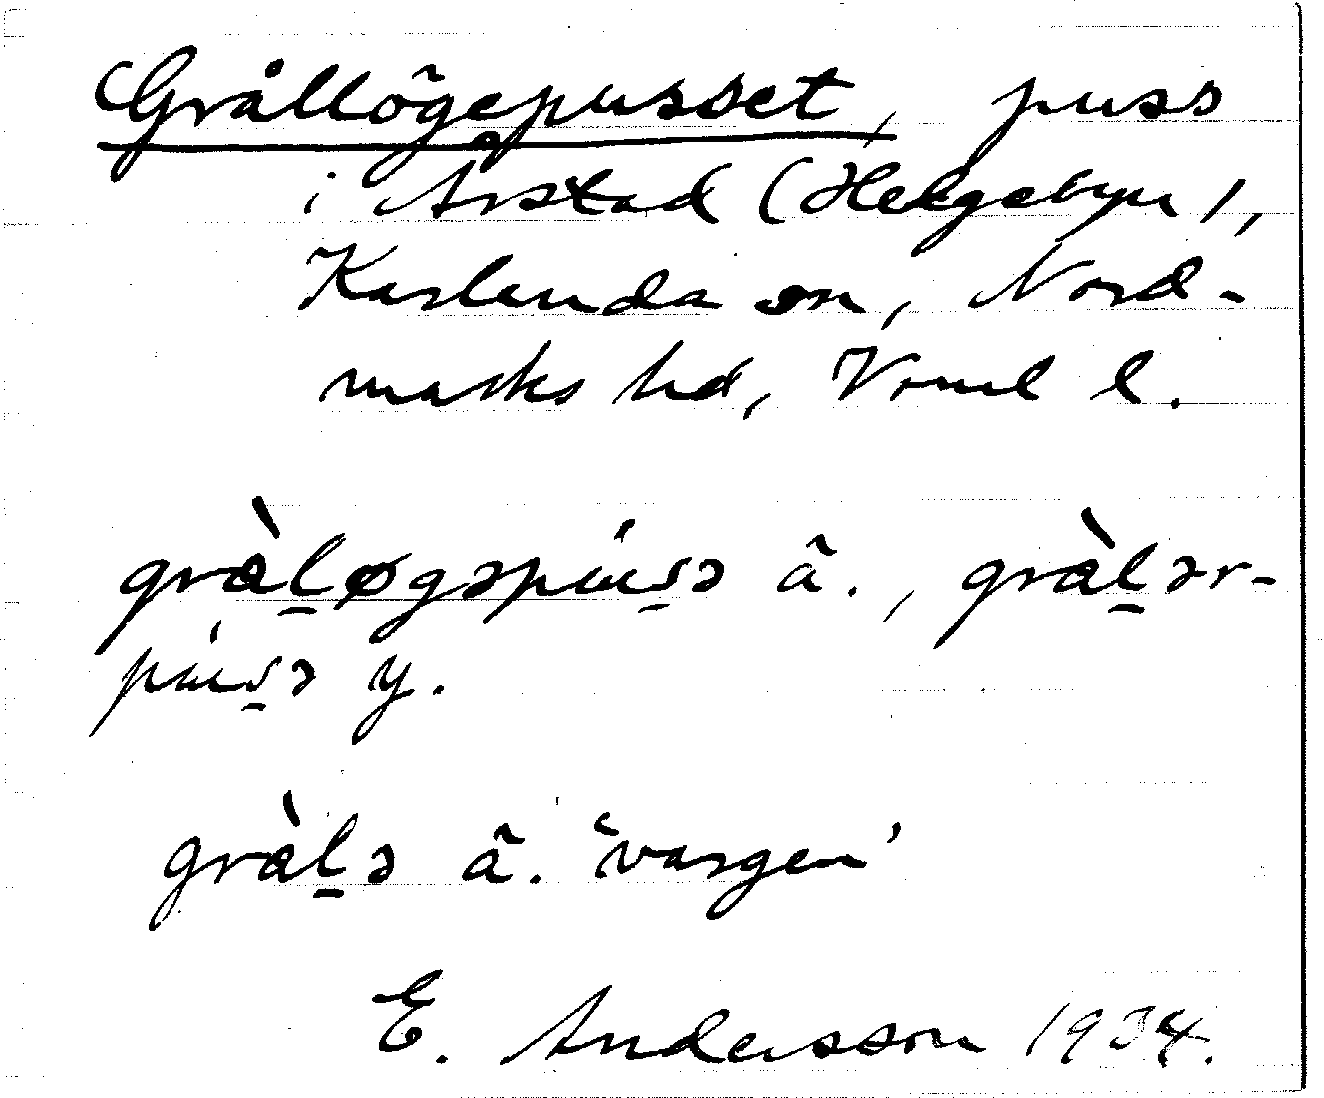 Grållögepusset, puss
i Årstad (Helgebyn),
Karlanda sn, Nord-
marks hd, Vrml l.
gràl̠øgəpús̠ə ã., gràl̠ər-
pús̠ə y.
gràl̠ə ã. ‘vargen’
E. Andersson 1934.